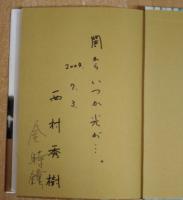 闇から いつか光が…。
2004.
7.3.
西村秀樹
金時鐘